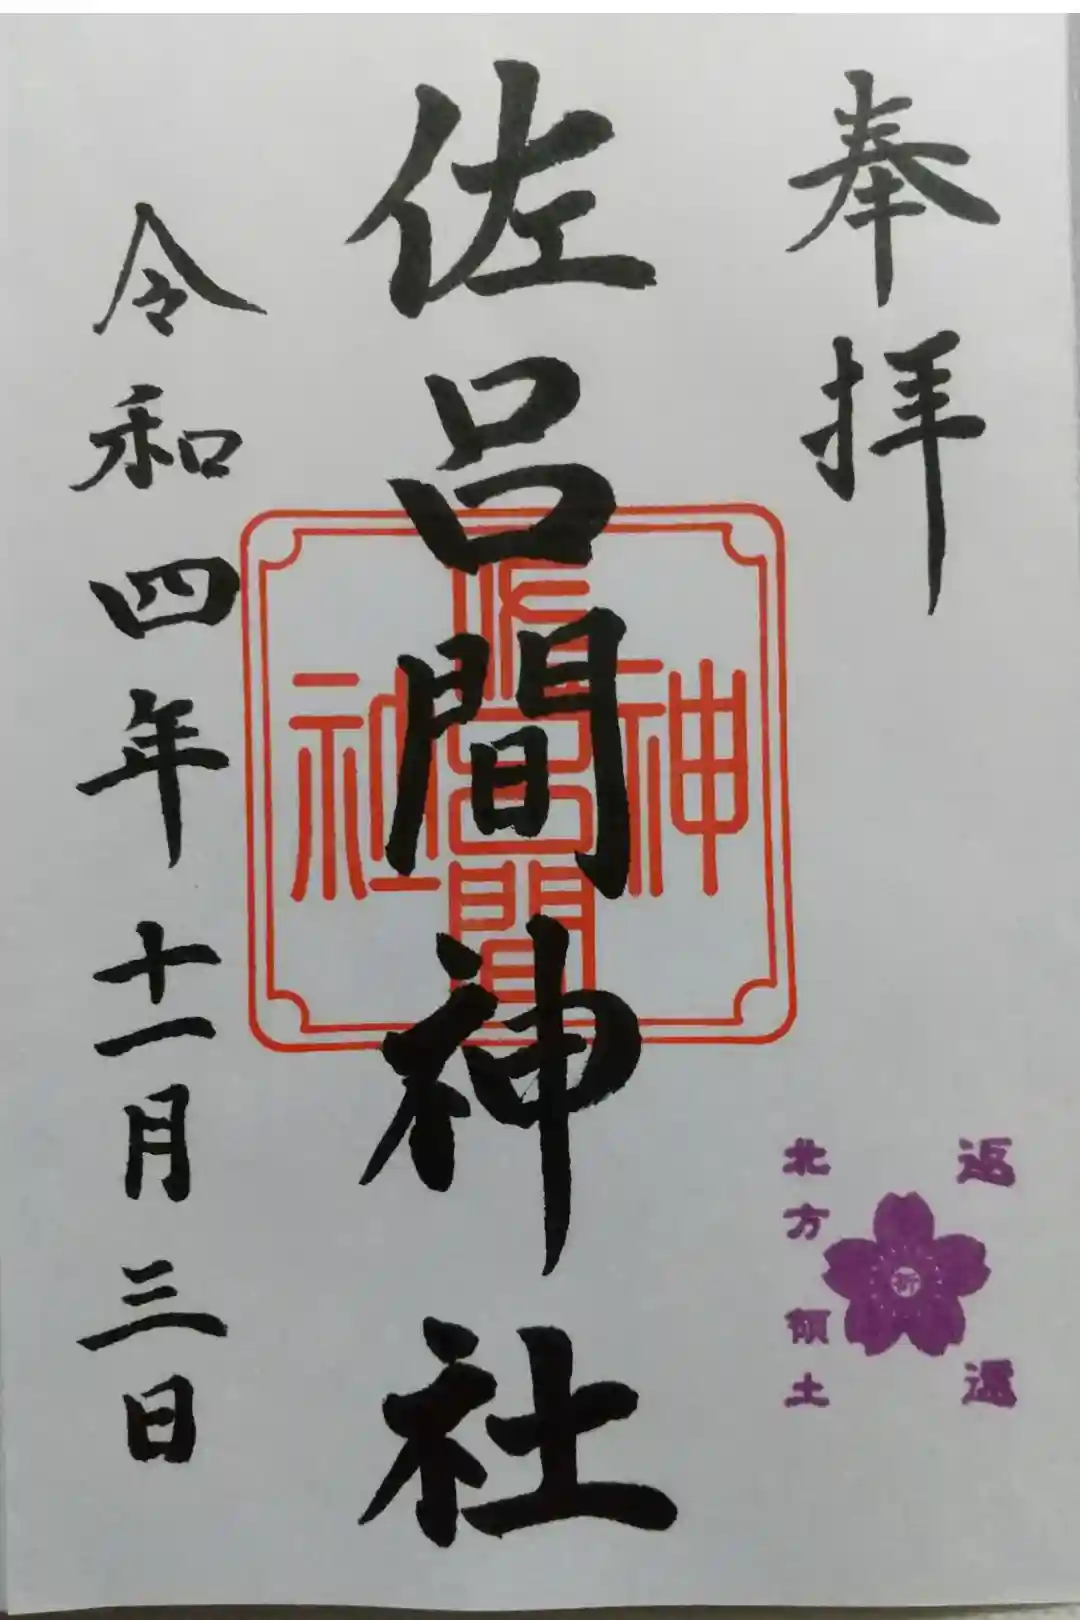 奉拝
佐呂間神社
令和四年十一月三日
佐呂間
神社
返還
祈
北方領土